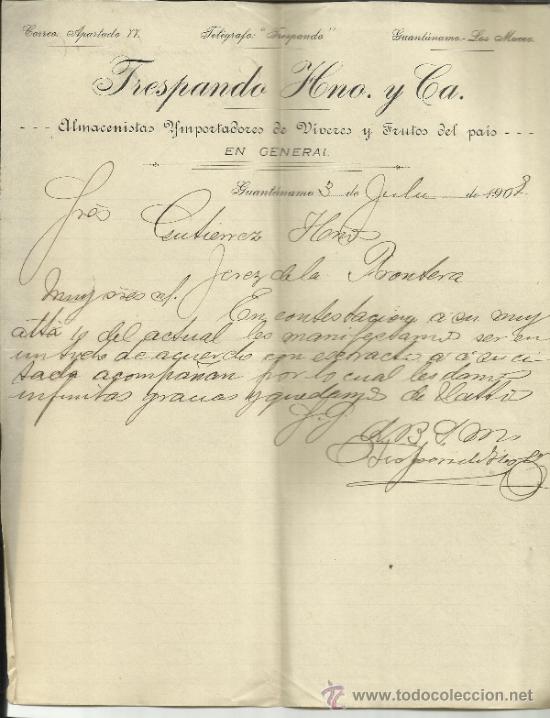 Correo: Apartado 77. Telégrafo: "Trespando" Guantánamo - Los Maceo.
Trespando Hno. y Ca.
Almacenistas Ymportadores de Víveres y Frutos del país
EN GENERAL
Guantánamo 3 de Julio de 1908
Sres
Gutierrez Hnos
Jerez de la Frontera
Muy sres ns/.
En contestacion a su muy
atta del actual les manifestamos ser en
un todo de acuerdo con extracto a su ci
tada acompañan por lo cual les damos
infinitas gracias y quedamos de Vds atts
S.S
Q.B.S.M.
Trespando Hno y Ca
www.todocoleccion.net